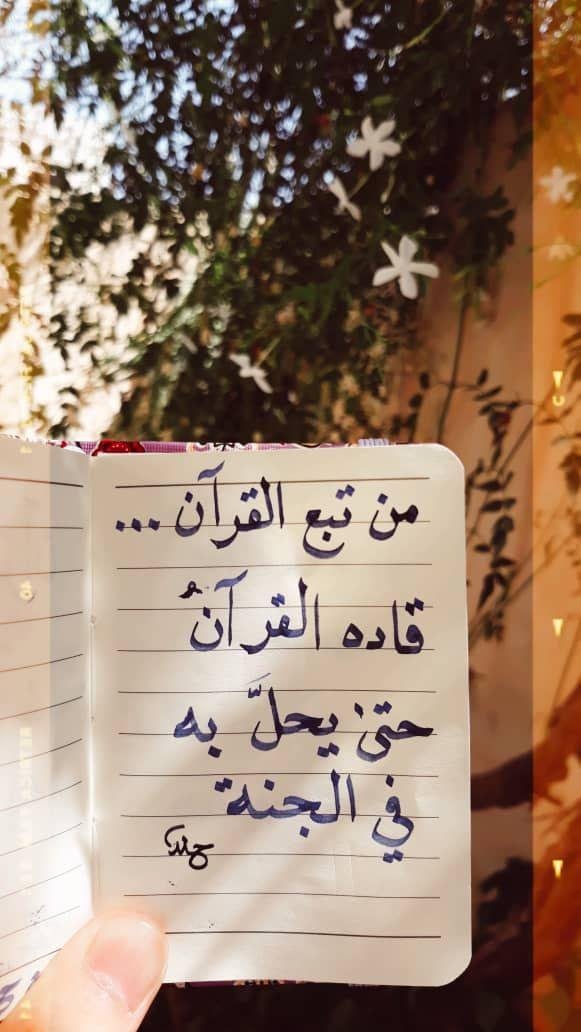 من تبع القرآن...
قاده القرآنُ
حتىٰ يحلَّ به
في الجنة